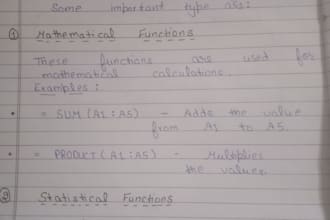 Some important type are:
① Mathematical Functions
These functions are used for
mathematical calculations.
Examples:
• = SUM (A1:A5) - Adds the value
from A1 to A5.
• = PRODUCT (A1:A5) - Multiplies
the values.
② Statistical Functions